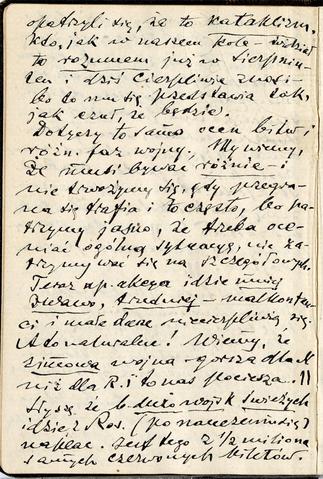 opatrzyli się, że to kataklizm.
kto, jak w naszem kole – widział
to rozumem już w sierpniu
ten i dziś cierpliwie znosi –
bo to mu się przedstawia tak,
jak czuł, że będzie.
Dotyczy to samo ocen bitw i
różn. faz wojny. My wiemy,
że musi bywać różnie – i
nie trwożymy się, gdy przegra-
na się trafia i to często, bo pa-
trzymy jasno, że trzeba oce-
niać ogólną sytuację, nie za-
trzymywać się na szczegółowych.
Teraz np. akcja idzie mniej
żwawo, trudniej – malkonten-
ci i małe dane niecierpliwią się.
A to naturalne! Wiemy, że
zimowa wojna – gorsza dla N
niż dla R. i to nas pociesza.
Słyszę że b. dużo wojsk świeżych
idzie z Ros. (po nauczeniu się)
naplac. Jest tego 2 1/2 miliona
samych czerwonych biletów.